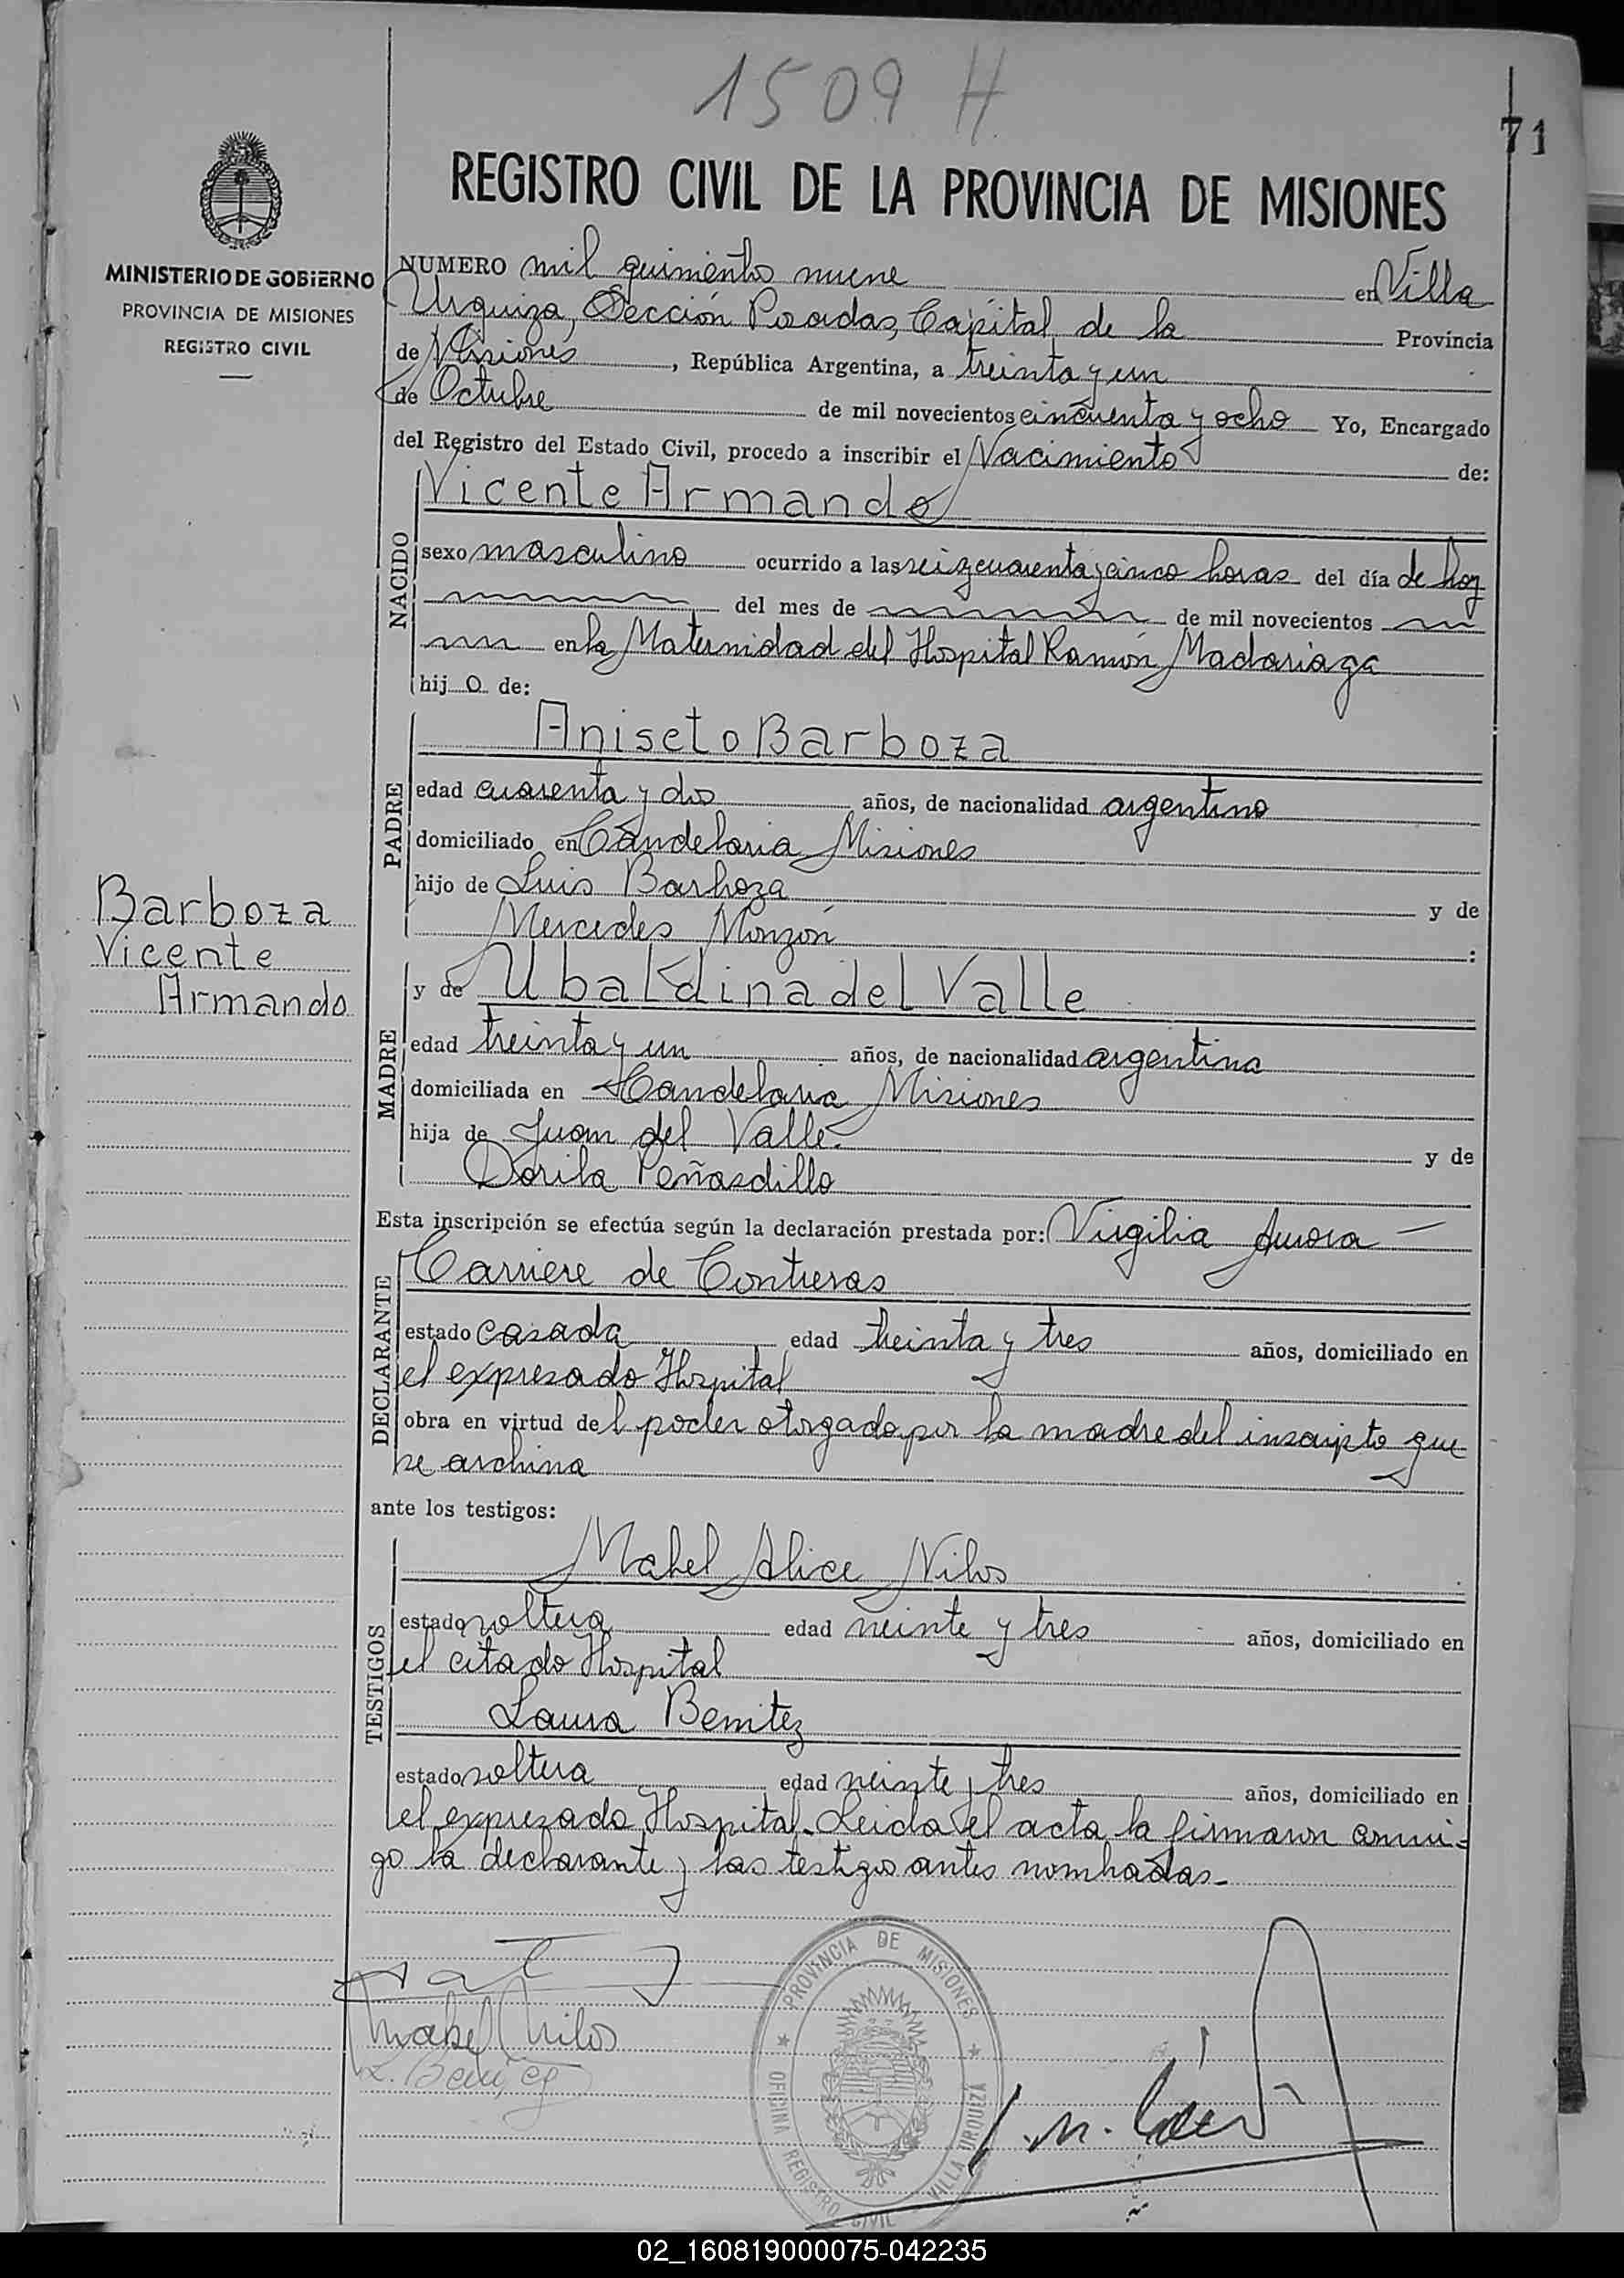 1509 H
71
REGISTRO CIVIL DE LA PROVINCIA DE MISIONES
MINISTERIO DE GOBIERNO
PROVINCIA DE MISIONES
REGISTRO CIVIL
NUMERO mil quinientos nueve en Villa
Urquiza, Sección Posadas, Capital de la Provincia
de Misiones, República Argentina, a treinta y un
de Octubre de mil novecientos cincuenta y ocho Yo, Encargado
del Registro del Estado Civil, procedo a inscribir el Nacimiento de:
NACIDO
Vicente Armando
sexo masculino ocurrido a las seis y cuarenta y cinco horas del día de hoy
del mes de de mil novecientos
en la Maternidad del Hospital Ramón Madariaga
hij o de:
PADRE
Aniseto Barboza
edad cuarenta y dos años, de nacionalidad argentino
domiciliado en Candelaria Misiones
hijo de Luis Barboza y de
Mercedes Monzón :
Barboza
Vicente
Armando
MADRE
y de Ubaldina del Valle
edad treinta y un años, de nacionalidad argentina
domiciliada en Candelaria Misiones
hija de Juan del Valle y de
Dorila
Esta inscripción se efectúa según la declaración prestada por: Virgilia Aurora
DECLARANTE
Carriere de Contreras
estado casada edad treinta y tres años, domiciliado en
el expresado Hospital
obra en virtud de l poder otorgado por la madre del inscripto que
se archiva
ante los testigos:
TESTIGOS
Mabel Alice Nilos
estado soltera edad veinte y tres años, domiciliado en
el citado Hospital
Laura Benitez
estado soltera edad veinte y tres años, domiciliado en
el expresado Hospital. Leida el acta, la firmaron conmi-
go la declarante y las testigos antes nombradas.-
Mabel Nilos
L. Benitez
PROVINCIA DE MISIONES
OFICINA REGISTRO CIVIL
VILLA URQUIZA
02_160819000075-042235